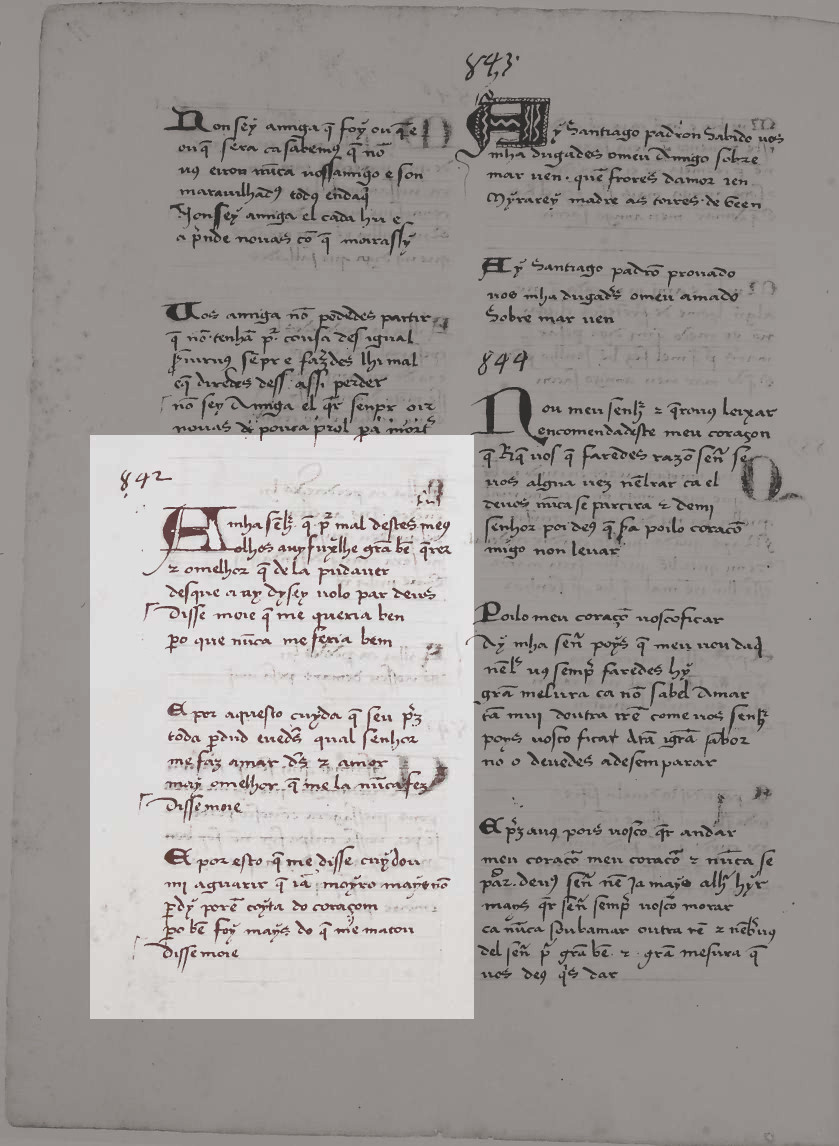 Non sey amiga q̃ foy ou q̃ e
ou q̃ sera ca sabemꝯ q̃ nõ
vꝯ errou nũca uossamigo e son
maravilhadꝯ todꝯ endaq̃
Non ssey amiga el cada hu e
a p̃nde nouas cõ q̃ moirassy
Uos amiga nõ podedes partir
q̃ nõ tenhã p̃r cousa desigual
seruiruꝯ senp̃r e fazedes lhi mal
e q̃ diredes dess assi perder
nõ sey Amiga el q̃r senpr oir
nouas de pouca prol pera mort̃
842
A mha señh̃r q̃ p̃r mal destes meꝯ
olhos auy fuylhe grã bẽ q̃rer
⁊ o melhor q̃ de la pud auer
des que a uy dysey uolo par deus
Disse moie q̃ me queria ben
p̃o que nũca me feria bem
E por aquesto cuyda q̃ seu p̃z
toda p̃dud e ued̃s qual senhor
me faz amar d̃s ⁊ amor
may o melhor q̃ me la nũca fez
Disse moie
E por esto q̃ me disse cuydou
mi aguarir q̃ iã moyro mays nõ
p̃dy porẽ coyta do coraçom
p̃o bẽ foy mays do q̃ me matou
disse moie
843
Ay Santiago padron sabido uos
mha dugades o meu Amigo sobre
mar uen quẽ frores damor ten
Myrarey madre as torres de Geen
Ay Santiago padrõ prouado
uos mha dugad̃s o meu amado
Sobre mar uen
844
Nou meu señh̃r ⁊ q̃rouꝯ leixar
encomendadeste meu coraçon
q̃ q̃ uos q̃ faredes razõ señ se
uos algua uez nẽbrar ca el
deuos nũca se partira ⁊ demi
senhor por deꝯ q̃ sa poilo coracõ
migo non leuar
Poilo meu coraçõ uosco ficar
Ay mha señ poys q̃ meu uou daq̃
nẽbr̃ uꝯ semp̃ faredes hy
grã mesura ca nõ sabel Amar
tã mui doutra rrẽ come uos señh̃r
poys uosco ficar Atã igrã sabor
nõ o deuedes a desemparar
E p̃z auꝯ pois uosco q̃r andar
meu coracõ meu coracõ ⁊ nũca se
par deuꝯ señ nẽ ia mays alh̃ hyr
mays q̃r señ semp̃ uosco morar
ca nũca soub amar outra rẽ ⁊ nẽbruꝯ
del señ p̃ grã bẽ ⁊ grã mesura q̃
uos deꝯ q̃s dar